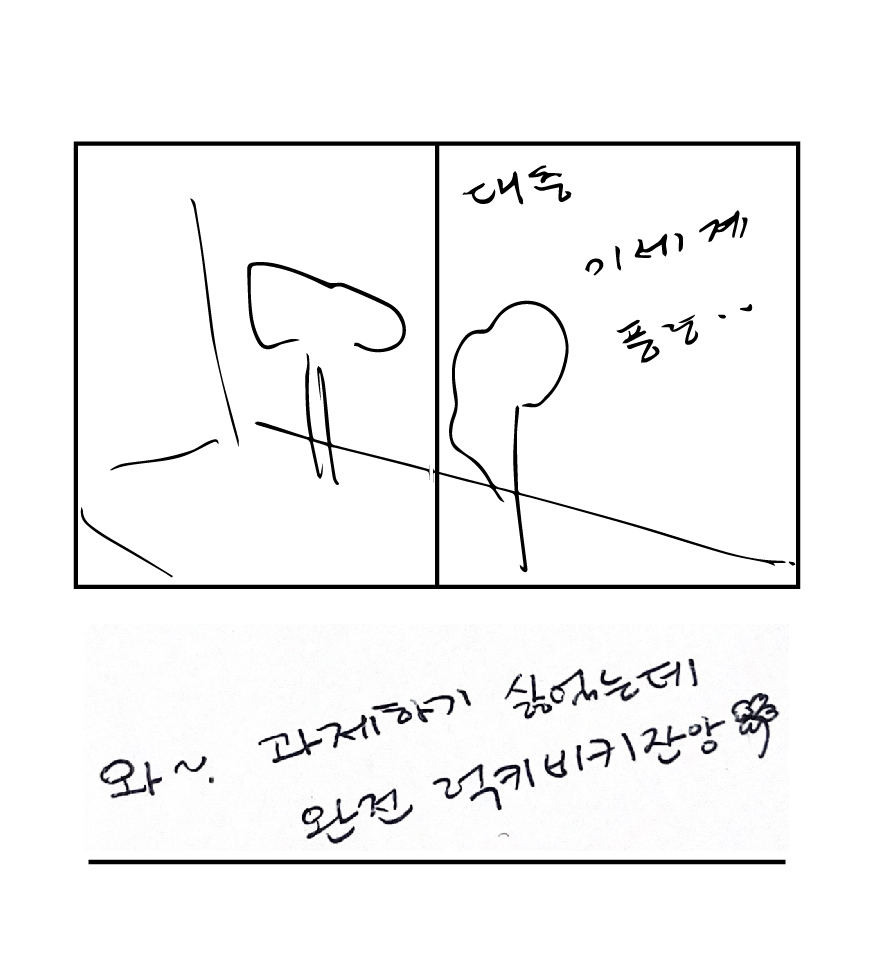 대충
이세계
풍경..
와~. 과제하기 싫었는데
완전 럭키비키잔앙